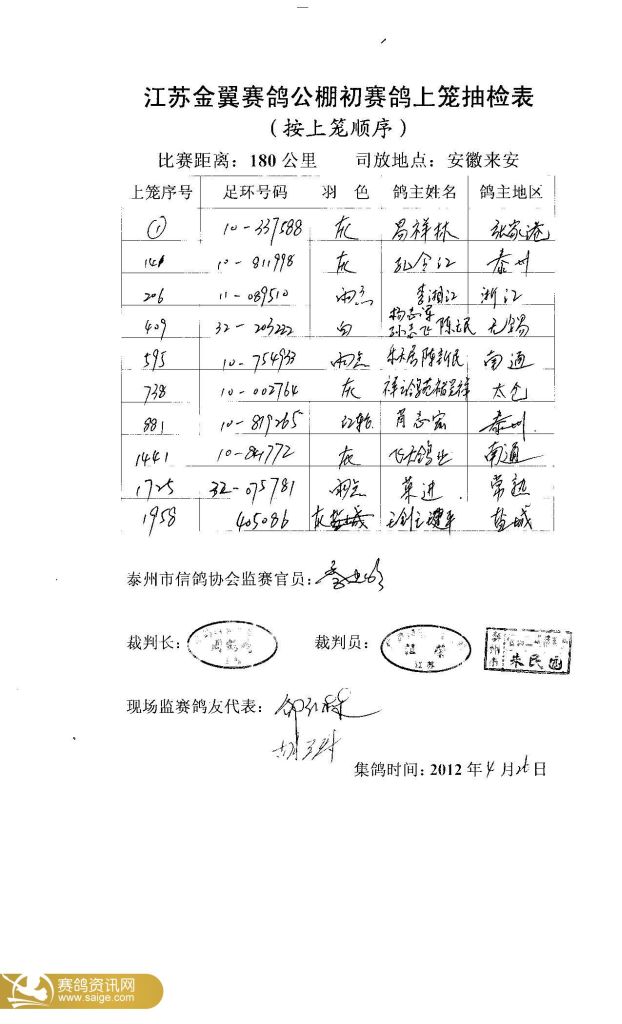 江苏金翼赛鸽公棚初赛鸽上笼抽检表
(按上笼顺序)
比赛距离：180公里 司放地点：安徽来安
上笼序号 足环号码 羽 色 鸽主姓名 鸽主地区
① 10-337588 灰 昌祥林 张家港
141 10-811998 灰 孔令江 泰州
206 11-089510 雨点 李湘江 浙江
409 32-203222 白 杨志军
孙志飞 陈立民 无锡
595 10-754933 雨点 陈新民 南通
738 10-002764 灰 太仓
881 10-819265 红轮 肖志宏 泰州
1441 灰 飞天鸽业 南通
1725 32-075781 雨点 莫进 常熟
1958 405086 灰 盐城
泰州市信鸽协会监赛官员：
裁判长： 裁判员： 朱民远
江苏
现场监赛鸽友代表：
集鸽时间：2012年4月26日
赛鸽资讯网
www.saige.com